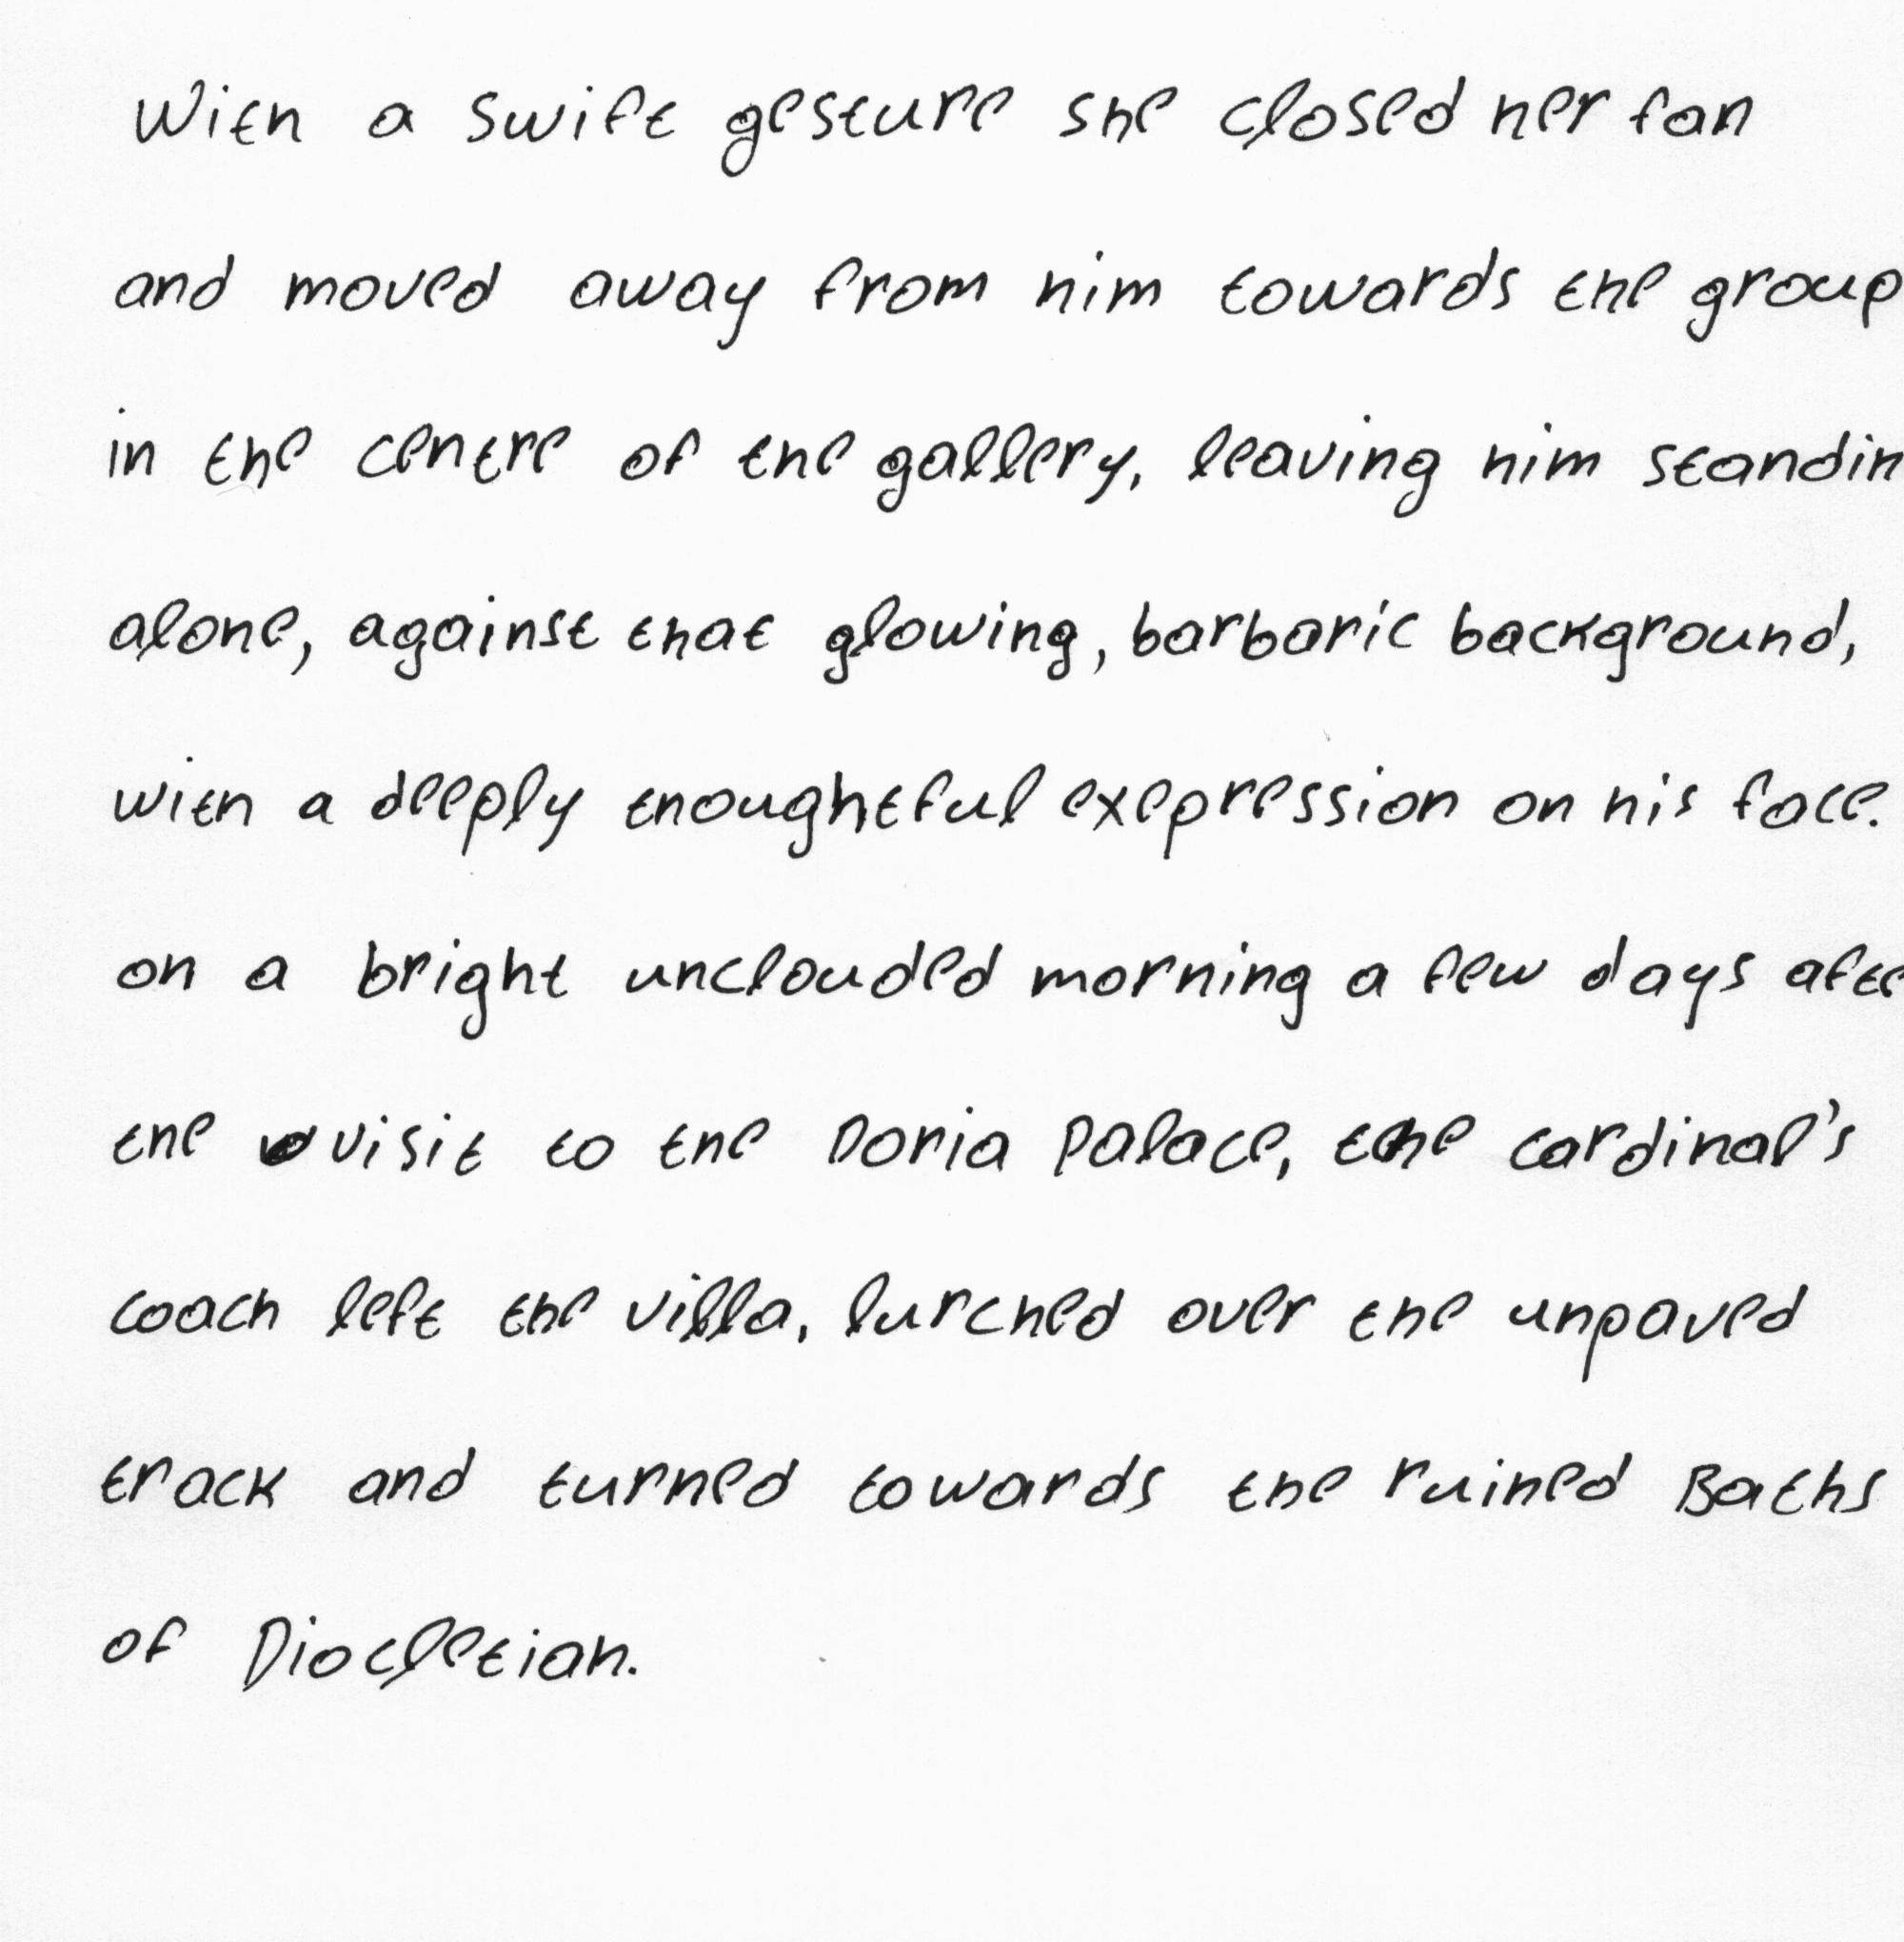 With a swift gesture she closed her fan
and moved away from him towards the group
in the centre of the gallery, leaving him standin
alone, against that glowing, barbaric background,
with a deeply thoughtful exepression on his face.
on a bright unclouded morning a few days afte
the visit to the Doria Palace, the cardinal's
coach left the villa, lurched over the unpaved
track and turned towards the ruined Baths
of Diocletian.